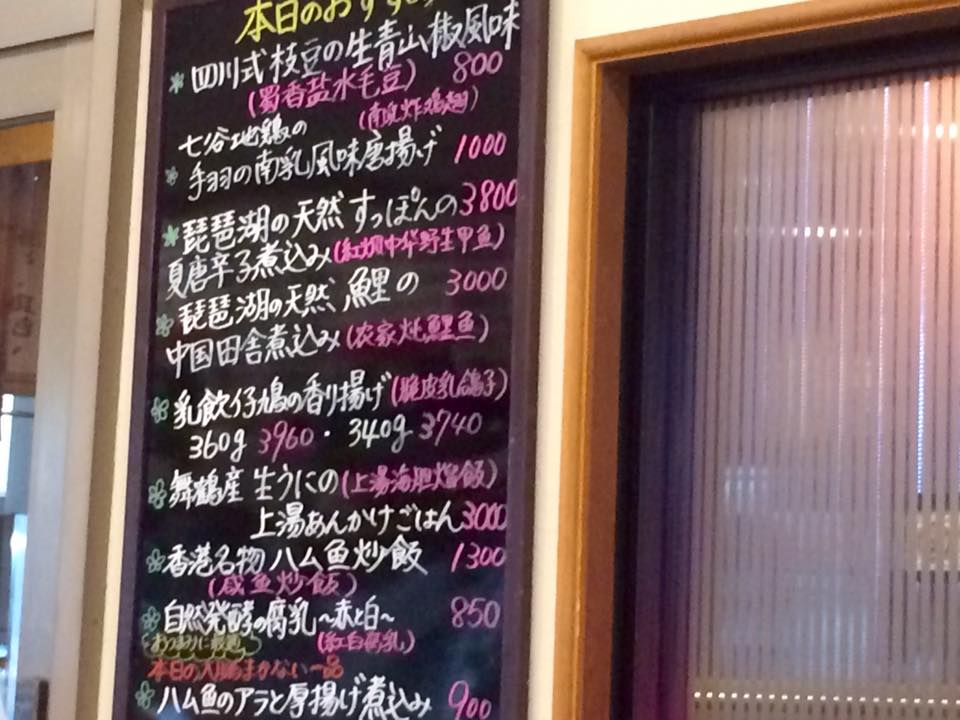 本日のおすすめ
四川式枝豆の生青山椒風味
(蜀香盐水毛豆) 800
七谷地鶏の (南乳炸鸡翅)
手羽の南乳風味唐揚げ 1000
琵琶湖の天然すっぽんの 3800
夏唐辛子煮込み (紅焖中华野生甲鱼)
琵琶湖の天然鯉の 3000
中国田舎煮込み (农家炖鯉鱼)
乳飲仔鳩の香り揚げ (脆皮乳鴿子)
360g 3960・340g 3740
舞鶴産 生うにの (上湯海胆烩飯)
上湯あんかけごはん 3000
香港名物 ハム魚炒飯 1300
(咸鱼炒飯)
自然発酵の腐乳〜赤と白〜 850
おつまみに最適 (紅白腐乳)
本日の まかない一品
ハム魚のアラと厚揚げ煮込み 900